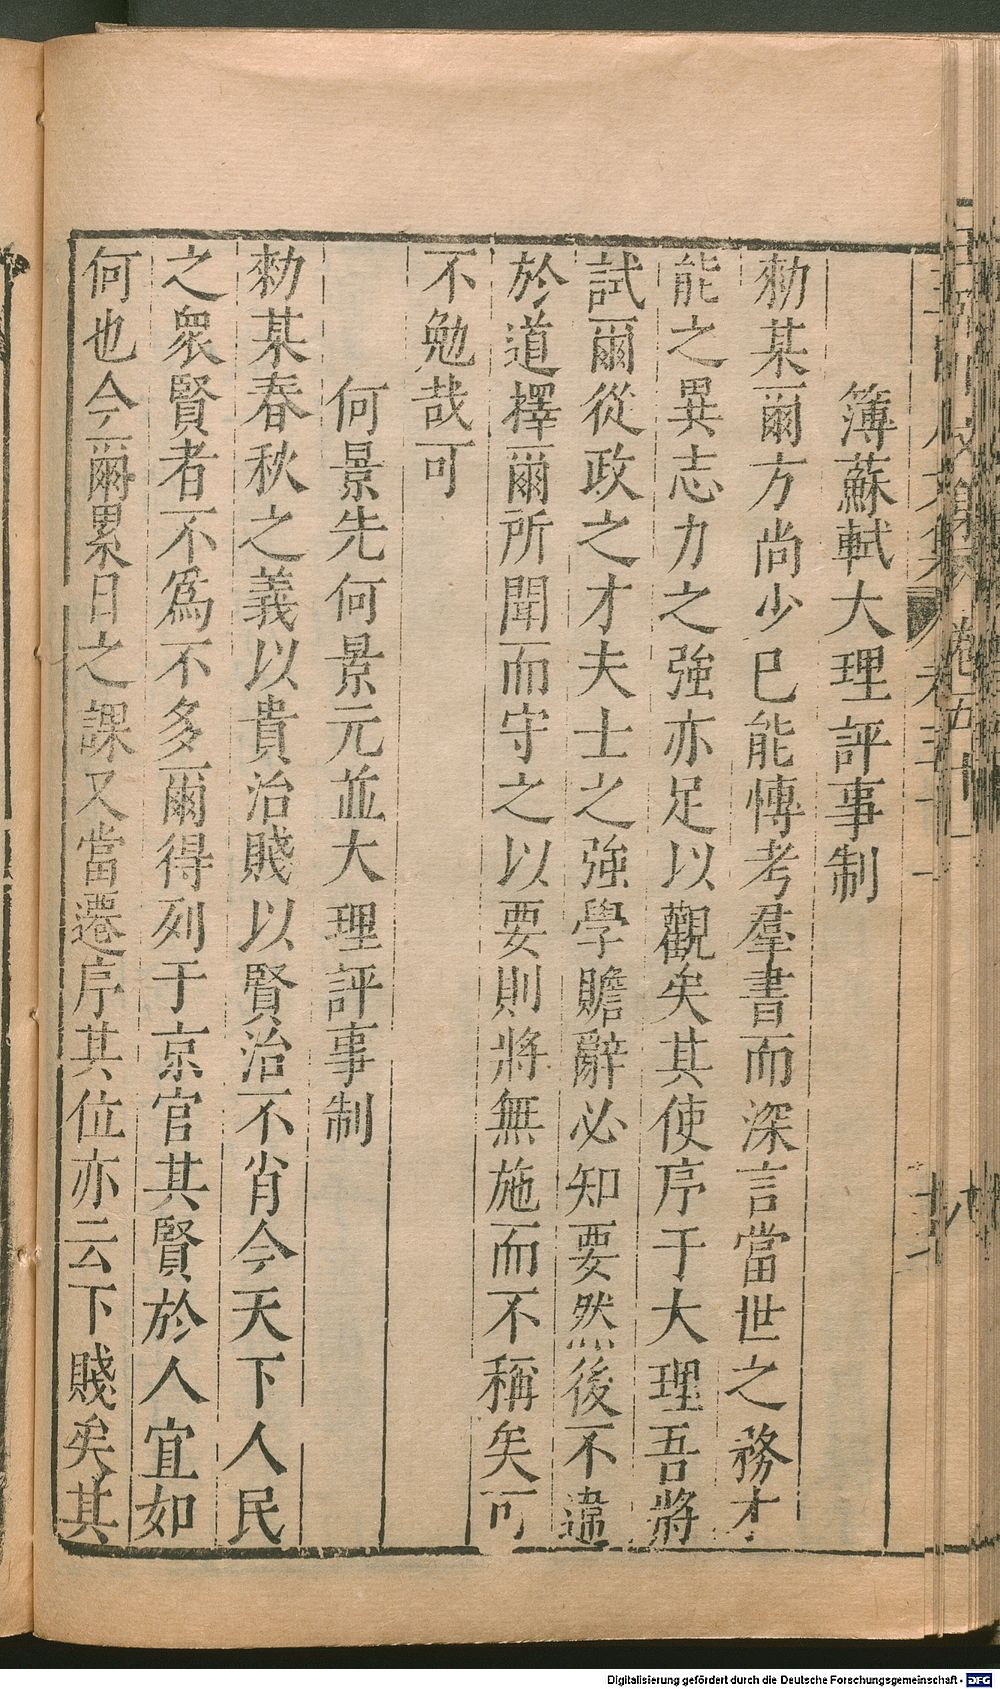 簿蘇軾大理評事制
勑某爾方尚少巳能愽考羣書而深言當世之務才
能之異志力之強亦足以觀矣其使序于大理吾將
試爾從政之才夫士之強學贍辭必知要然後不違
於道擇爾所聞而守之以要則將無施而不稱矣可
不勉哉可
何景先何景元並大理評事制
勑某春秋之義以貴治賤以賢治不肖今天下人民
之衆賢者不爲不多爾得列于京官其賢於人宜如
何也今爾累日之課又當遷序其位亦云下賤矣其
Digitalisierung gefördert durch die Deutsche Forschungsgemeinschaft - DFG